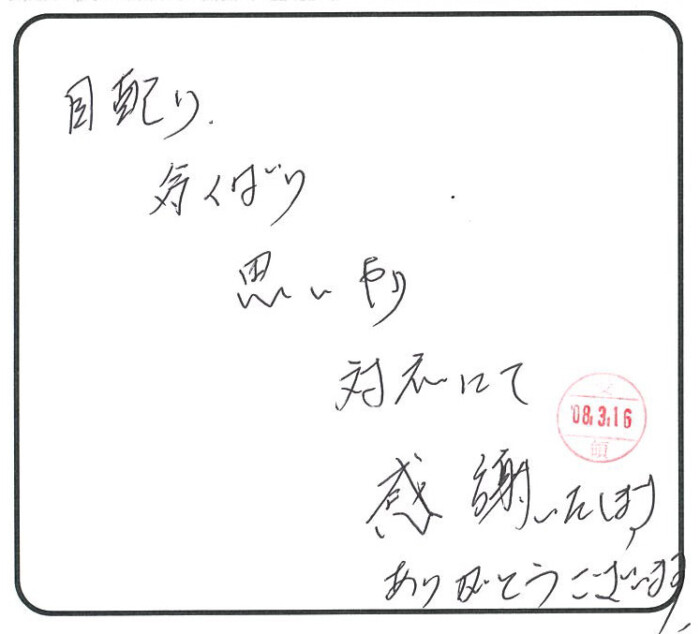 目配り.
気くばり
思いやり
対応にて
'08.3.16
領
感謝いたします
ありがとうございます